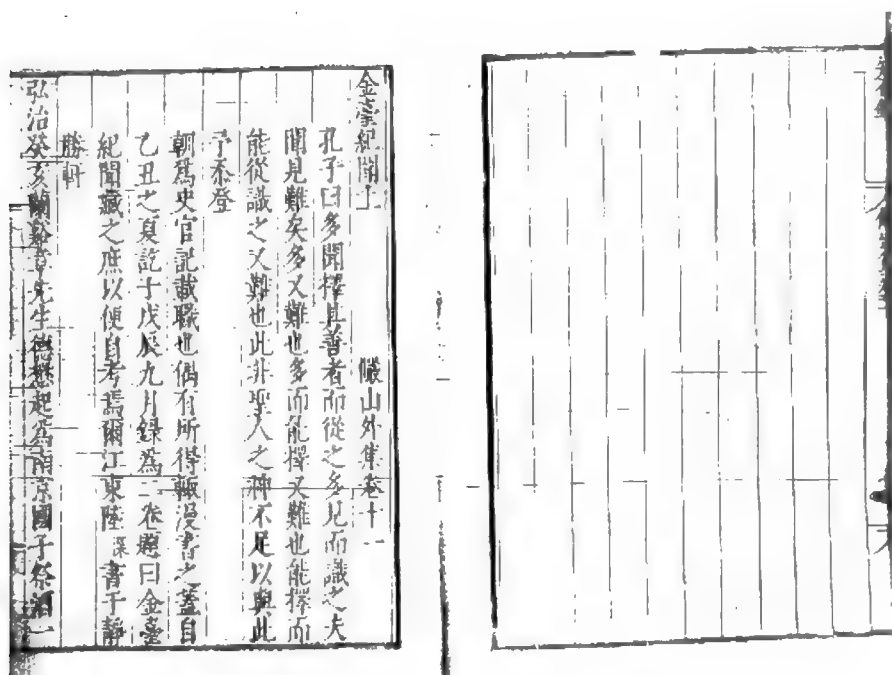 金臺紀聞上　儼山外集卷十一
孔子曰多聞擇其善者而從之多見而識之夫
聞見難矣多又難也多而能擇又難也能擇而
能從識之又難也此非聖人之神不足以與此
予忝登
朝爲史官記載職也偶有所得輒漫書之蓋自
乙丑之夏訖于戊辰九月録爲二卷題曰金臺
紀聞藏之庶以便自考焉爾江東陸深書于靜
勝軒
弘治癸亥蘭谿章先生德懋起爲南京國子祭酒一